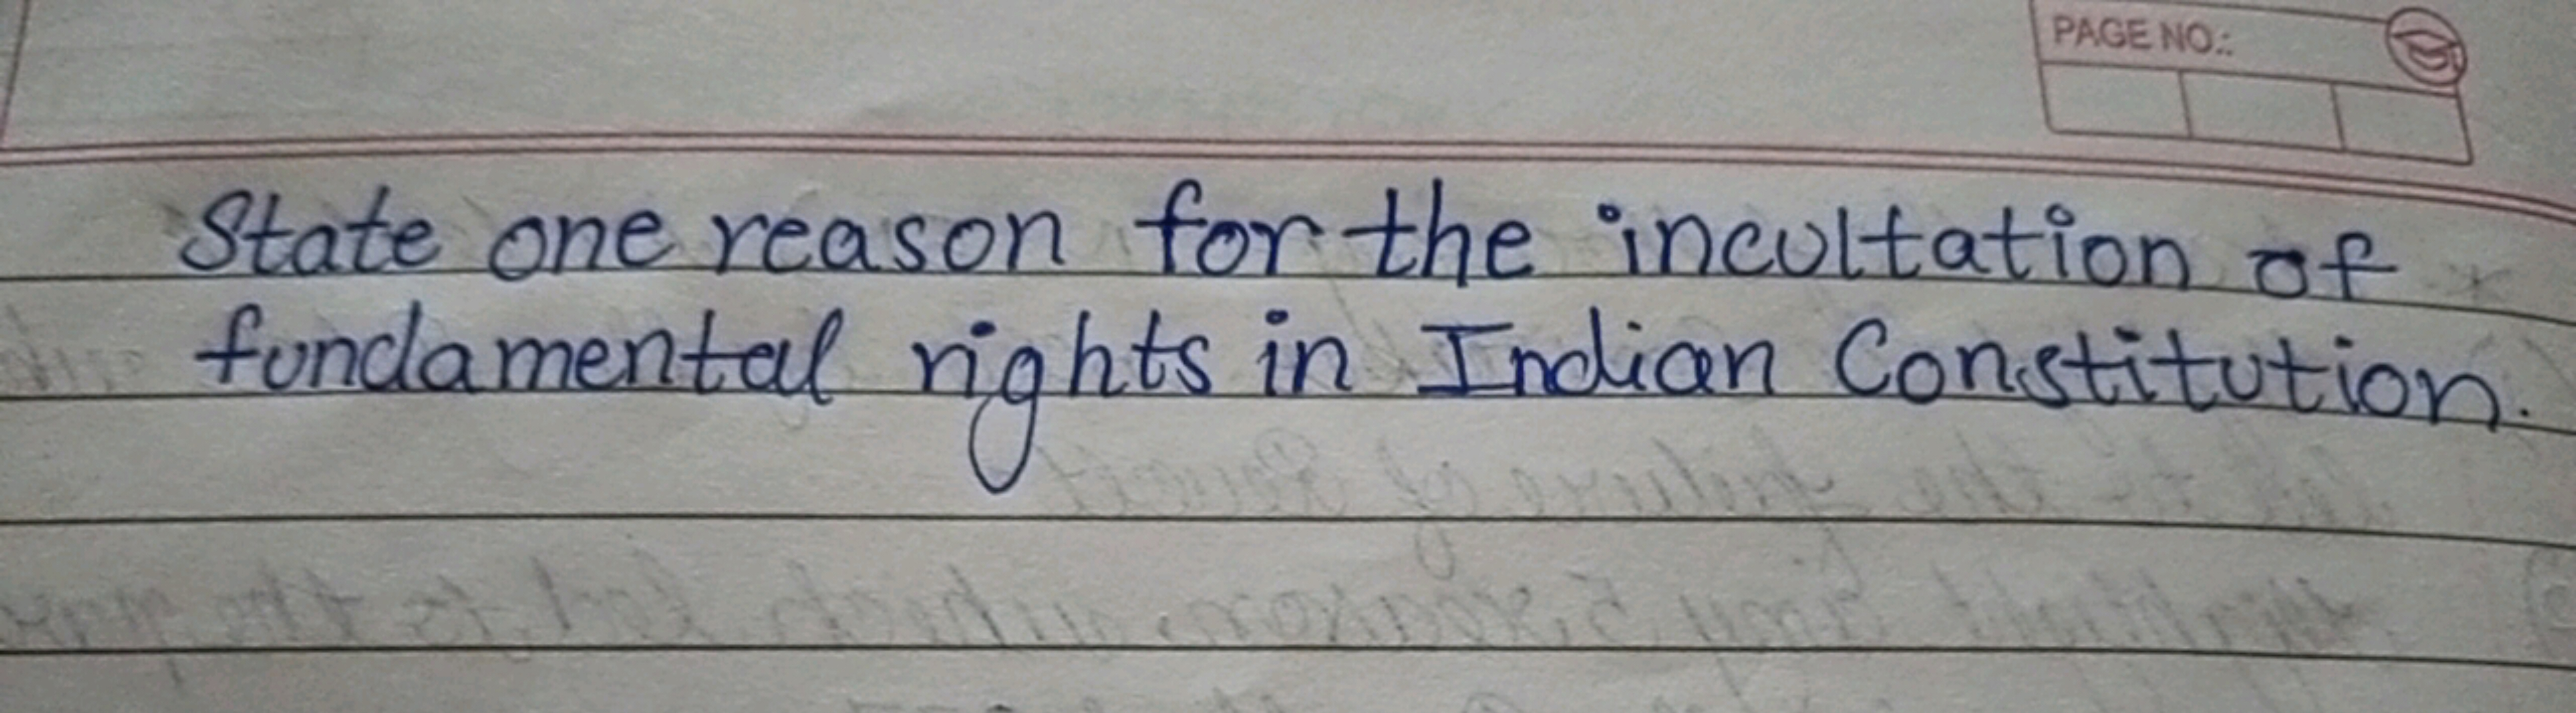 PAGE NO.:
State one reason for the incultation of
fundamental rights in Indian Constitution.